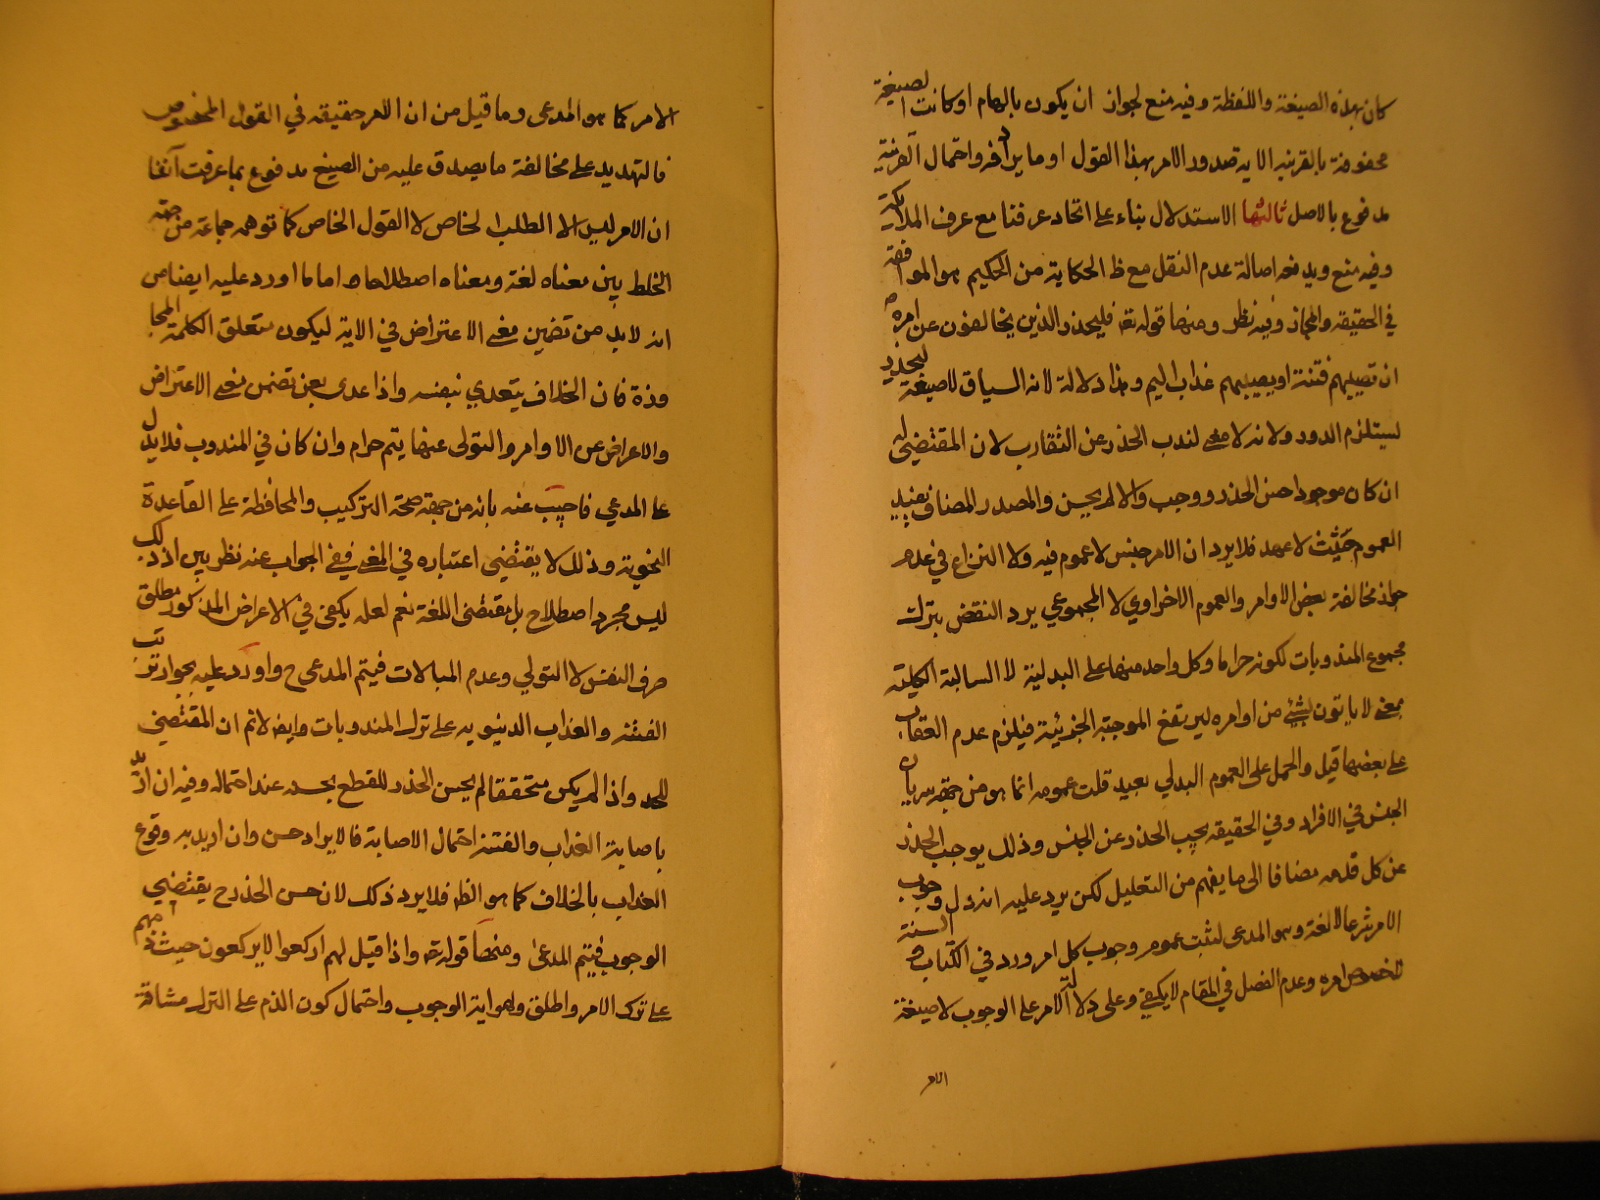 كان بهذه الصيغة واللفظة وفيه منع لجواز ان يكون بالهام او كانت الصيغة
محفوفة بالقرينة الا يقصدور الامر بهذا القول او ما يرادفه واحتمال القرينة
مدفوع بالاصل ثالثها الاستدلال بناء على اتحاد عرفنا مع عرف الملائكة
وفيه منع ويدفعه اصالة عدم النقل مع ظ الحكاية من الحكيم هو الموافقة
في الحقيقة والمجاز وفيه نظر ومنها قوله تعه فليحذر الذين يخالفون عن امره
ان تصيبهم فتنة او يصيبهم عذاب اليم وهذا دلالة لانه السياق لا صيغة ليحذر
ليستلزم الدور ولانه لا معنى لندب الحذر عن العقاب لان المقتضى له
ان كان موجودا حسن الحذر ووجب والا لم يحسن والمصدر المضاف يفيد
العموم حيث لا عهد فلا يرد ان الامر جنس لا عموم فيه ولا النزاع في عدم
جواز مخالفة بعض الاوامر والعموم الافرادي لا المجموعي يرد النقض بترك
مجموع المندوبات لكونه حراما وكل واحد منها على البدلية لا السالبة الكلية
بمعنى لا ياتون بشئ من اوامره ليرتفع الموجبة الجزئية فيلزم عدم العقاب
على بعضها قيل والحمل على العموم البدلي بعيد قلت عمومه انما هو من جهة سريان
الجنس في الافراد وفي الحقيقة يجب الحذر عن الجنس وذلك يوجب الحذر
عن كل فرد منه مضافا الى ما يفهم من التعليل لكن يرد عليه انه دل وجوب
الامر شرعا لا لغة وهو المدعى لثبت عموم وجوب كل امر ورد في الكتاب والسنة
لخصوص امره وعدم الفصل في المقام لا يكفي وعلى دلالة الامر على الوجوب لا صيغة
الامر
الامر كما هو المدعى وما قيل من ان الامر حقيقة في القول المخصوص
فالتهديد على مخالفة ما يصدق عليه من الصيغ مدفوع بما عرفت آنفا
ان الامر ليس الا الطلب الخاص لا القول الخاص كما توهمه جماعة من جهة
الخلط بين معناه لغة ومعناه اصطلاحا اما ما اورد عليه ايضا من
انه لا بد من تضمين معنى الاعتراض في الاية ليكون متعلق الكلمة المجا
وزة فان الخلاف يتعدى بنفسه واذا عدى بعن تضمن معنى الاعتراض
والاعراض عن الاوامر والتولى عنها يتم حرام وان كان في المندوب فلا يدل
على المدعي فاجيب عنه بانه من جهة صحة التركيب والمحافظة على القاعدة
النحوية وذلك لا يقتضى اعتباره في المعنى ففي الجواب عنه نظر بين اذ ذلك
ليس مجرد اصطلاح بل مقتضى اللغة نعم لعله يكفي في الاعراض المذكور مطلق
صرف النفس لا التولي وعدم المبالات فيتم المدعى ح واورد عليه بجواز ترتب
الفتنة والعذاب الدنيويه على ترك المندوبات وايضا لا تم ان المقتضى
للحد واذا لم يكن متحققا لم يحسن الحذر للقطع بحسنه عند احتماله وفيه ان اريد
باصابة العذاب والفتنة احتمال الاصابة فالايراد حسن وان اريد به وقوع
العذاب بالخلاف كما هو الظ فلا يرد ذلك لان حسن الحذر ح يقتضي
الوجوب فيتم المدعى ومنها قوله تع واذا قيل لهم اركعوا لا يركعون حيث ذمهم
على ترك الامر واطلق وهو اية الوجوب واحتمال كون الذم على الترك مشاقة